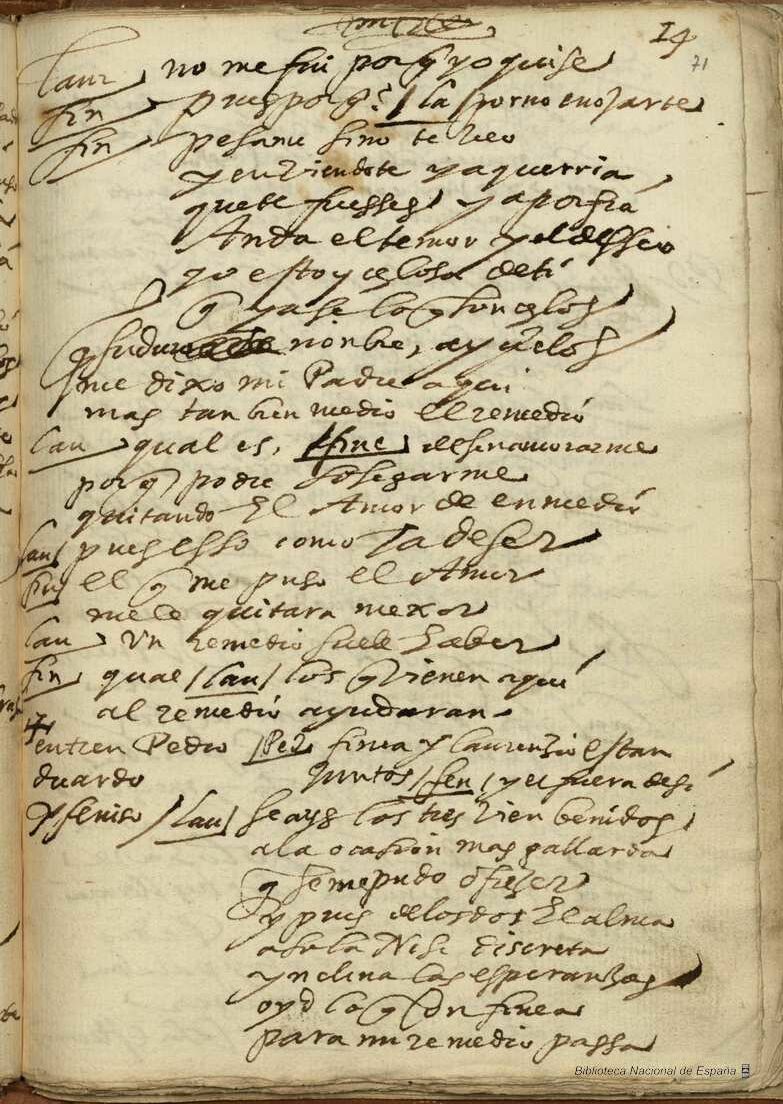 14
71
laur no me fui porq yo quise
fin pues porq? / la / por no enojarte
fin pesame si no te veo
y en viendote ya querria
que te fuesses y a porfia
Anda el temor y el desseo
yo estoy çelosa de ti
q ya se lo q son çelos
q su du nonbre, ay çielos
me dixo mi Padre aqui
mas tanbien me dio el remedio
lau qual es, / fine / desenamorarme
porq podre sosegarme
quitando El Amor de en medio
lau pues esso como a de ser
fin el q me puso el Amor
me le quitara mexor
lau Vn remedio suele haber
fin qual / lau / los q vienen aqui
al remedio ayudaran
entren Pedro / Ped finea y laurenzio estan
duardo juntos / fen / y el fuera de si
y feniso / lau / seays los tres bien benidos
a la ocasion mas gallarda
q se me pudo ofrezer
y pues de los dos El alma
a sola Nise discreta
ynclina las esperanzas
oyd lo q con finea
para mi remedio passa
Biblioteca Nacional de España